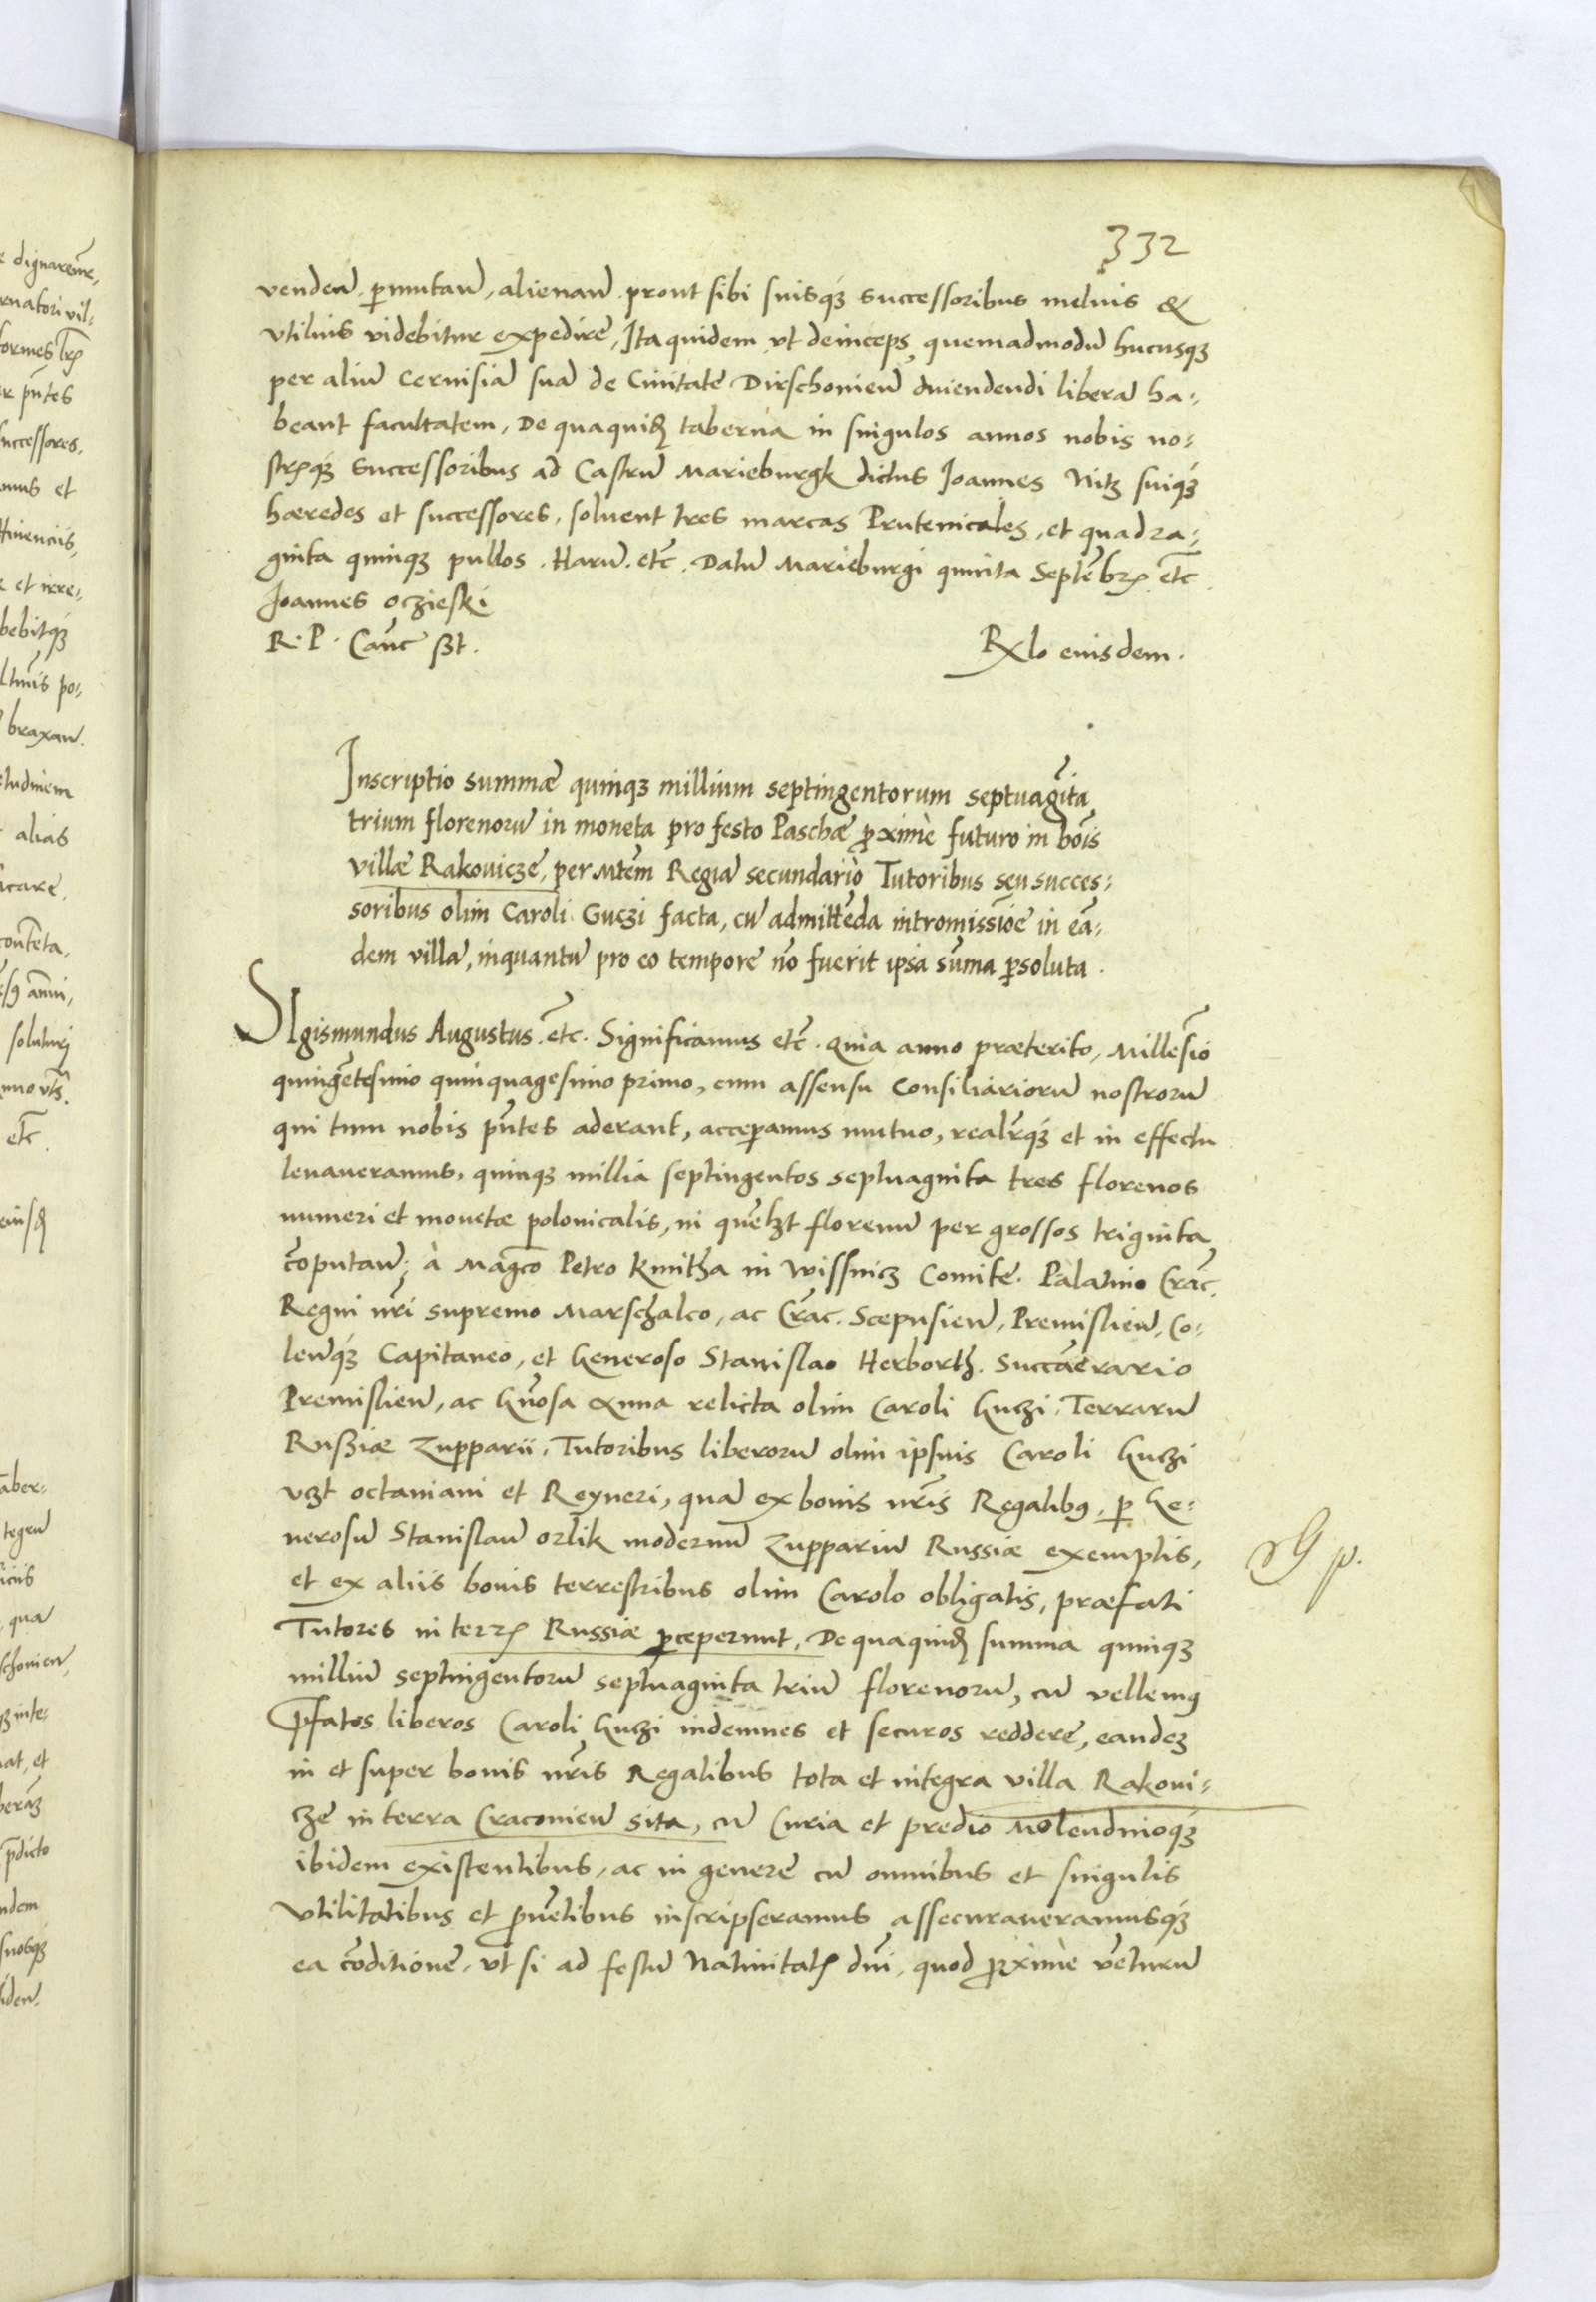 332
vendeñ. permutañ, alienañ prout sibi suisq́ successoribus melius &
vtilius videbitur expedire, Ita quidem vt deinceps quemadmodū hucusq́
per aliū Ceruisiā suā de Ciuitate Dirschonieñ diuendendi liberā ha-
beant facultatem, De quaquid taberna in singulos annos nobis no-
strisq́ Successoribus ad Castrū Marieburgk dictus Ioannes Nitz suiq́
hæredes et successores, soluent tres marcas Prutenicales, et quadra-
ginta quinq́ pullos. Harū. etc. Datū Marieburgi quinta Septēbris etc.
Ioannes Oczieski
R. P. Canc sst.
Rlo eiusdem.
Inscriptio summæ quinq́ millium septingentorum septuagīta
trium florenorū in moneta pro festo Paschæ proxime futuro in bonis
villæ Rakouicze, per Mtem Regiā secundario Tutoribus seu succes-
soribus olim Caroli Guczi facta, cū admittēda intromissiōe in eā-
dem villā, inquantū pro eo tempore nō fuerit ipsa sūma persoluta.
SIgismundus Augustus. etc. Significamus etc. Quia anno præterito, Millesīo
quingētesimo quinquagesimo primo, cum assensu Consiliariorū nostrorū
qui tum nobis pñtes aderant, acceperamus mutuo, realrq́ et in effectu
leuaueramus, quinq́ millia septingentos septuaginta tres florenos
numeri et monetæ polonicalis, in quēlzt florenū per grossos triginta
cōputañ, à Magco Petro Kmitha in Wissnicz Comite. Palatino Crac.
Regni nri supremo Marschalco, ac Crac. Scepusieñ, Premislieñ, Co-
leñq́ Capitaneo, et Generoso Stanislao Herborth. Succāerario
Premislieñ, ac Gñosa Anna relicta olim Caroli Guczi. Terrarū
Russiæ Zupparii, Tutoribus liberorū olim ipsius Caroli Guczi
vzt Octauiani et Reyneri, quā ex bonis nris Regalibus, per Ge-
nerosū Stanislaū Orlik modernū Zuppariū Russiæ exemptis,
et ex aliis bonis terrestribus olim Carolo obligatis, præfati
Tutores in terris Russiæ perceperunt, De quaquid summa quinq́
milliū septingentorū septuaginta triū florenorū, cū vellemus
pfatos liberos Caroli Guczi indemnes et securos reddere, eandez
in et super bonis nris Regalibus tota et integra villa Rakoui-
cze in terra Cracouieñ sita, cū Curia et predio Molendinoq́
ibidem existentibus, ac in genere cū omnibus et singulis
vtilitatibus et prouētibus inscripseramus assecuraueramusq́
ea cōditione, vt si ad festū Natiuitatis dñi, quod proxime vēturū